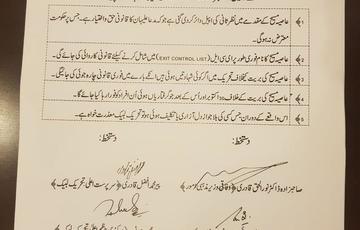 ﴿1﴾ عاصیہ مسیح کے مقدمے میں نظرثانی کی اپیل دائر کر دی گئی ہے جو کہ مدعا علیہان کا قانونی حق و اختیار ہے، جس پر حکومت
معترض نہ ہوگی۔
﴿2﴾ عاصیہ مسیح کا نام فوری طور پر ای سی ایل (EXIT CONTROL LIST) میں شامل کرنے کیلئے قانونی کاروائی کی جائے گی۔
﴿3﴾ عاصیہ مسیح کی بریت کے خلاف تحریک میں اگر کوئی شہادتیں ہوئی ہیں انکے بارے میں فوری قانونی چارہ جوئی کی جائیگی۔
﴿4﴾ عاصیہ مسیح کی بریت کے خلاف 30 اکتوبر اور اس کے بعد جو گرفتاریاں ہوئیں ان افراد کو فوراً رہا کیا جائے گا۔
﴿5﴾ اس واقعے کے دوران جس کسی کی بلا جواز دل آزاری یا تکلیف ہوئی ہو تو تحریک لبیک معذرت خواہ ہے۔
دستخط:
دستخط:
صاحبزادہ ڈاکٹر نور الحق قادری (وفاقی وزیر مذہبی امور)
پیر محمد افضل قادری (سرپرست اعلیٰ تحریک لبیک)